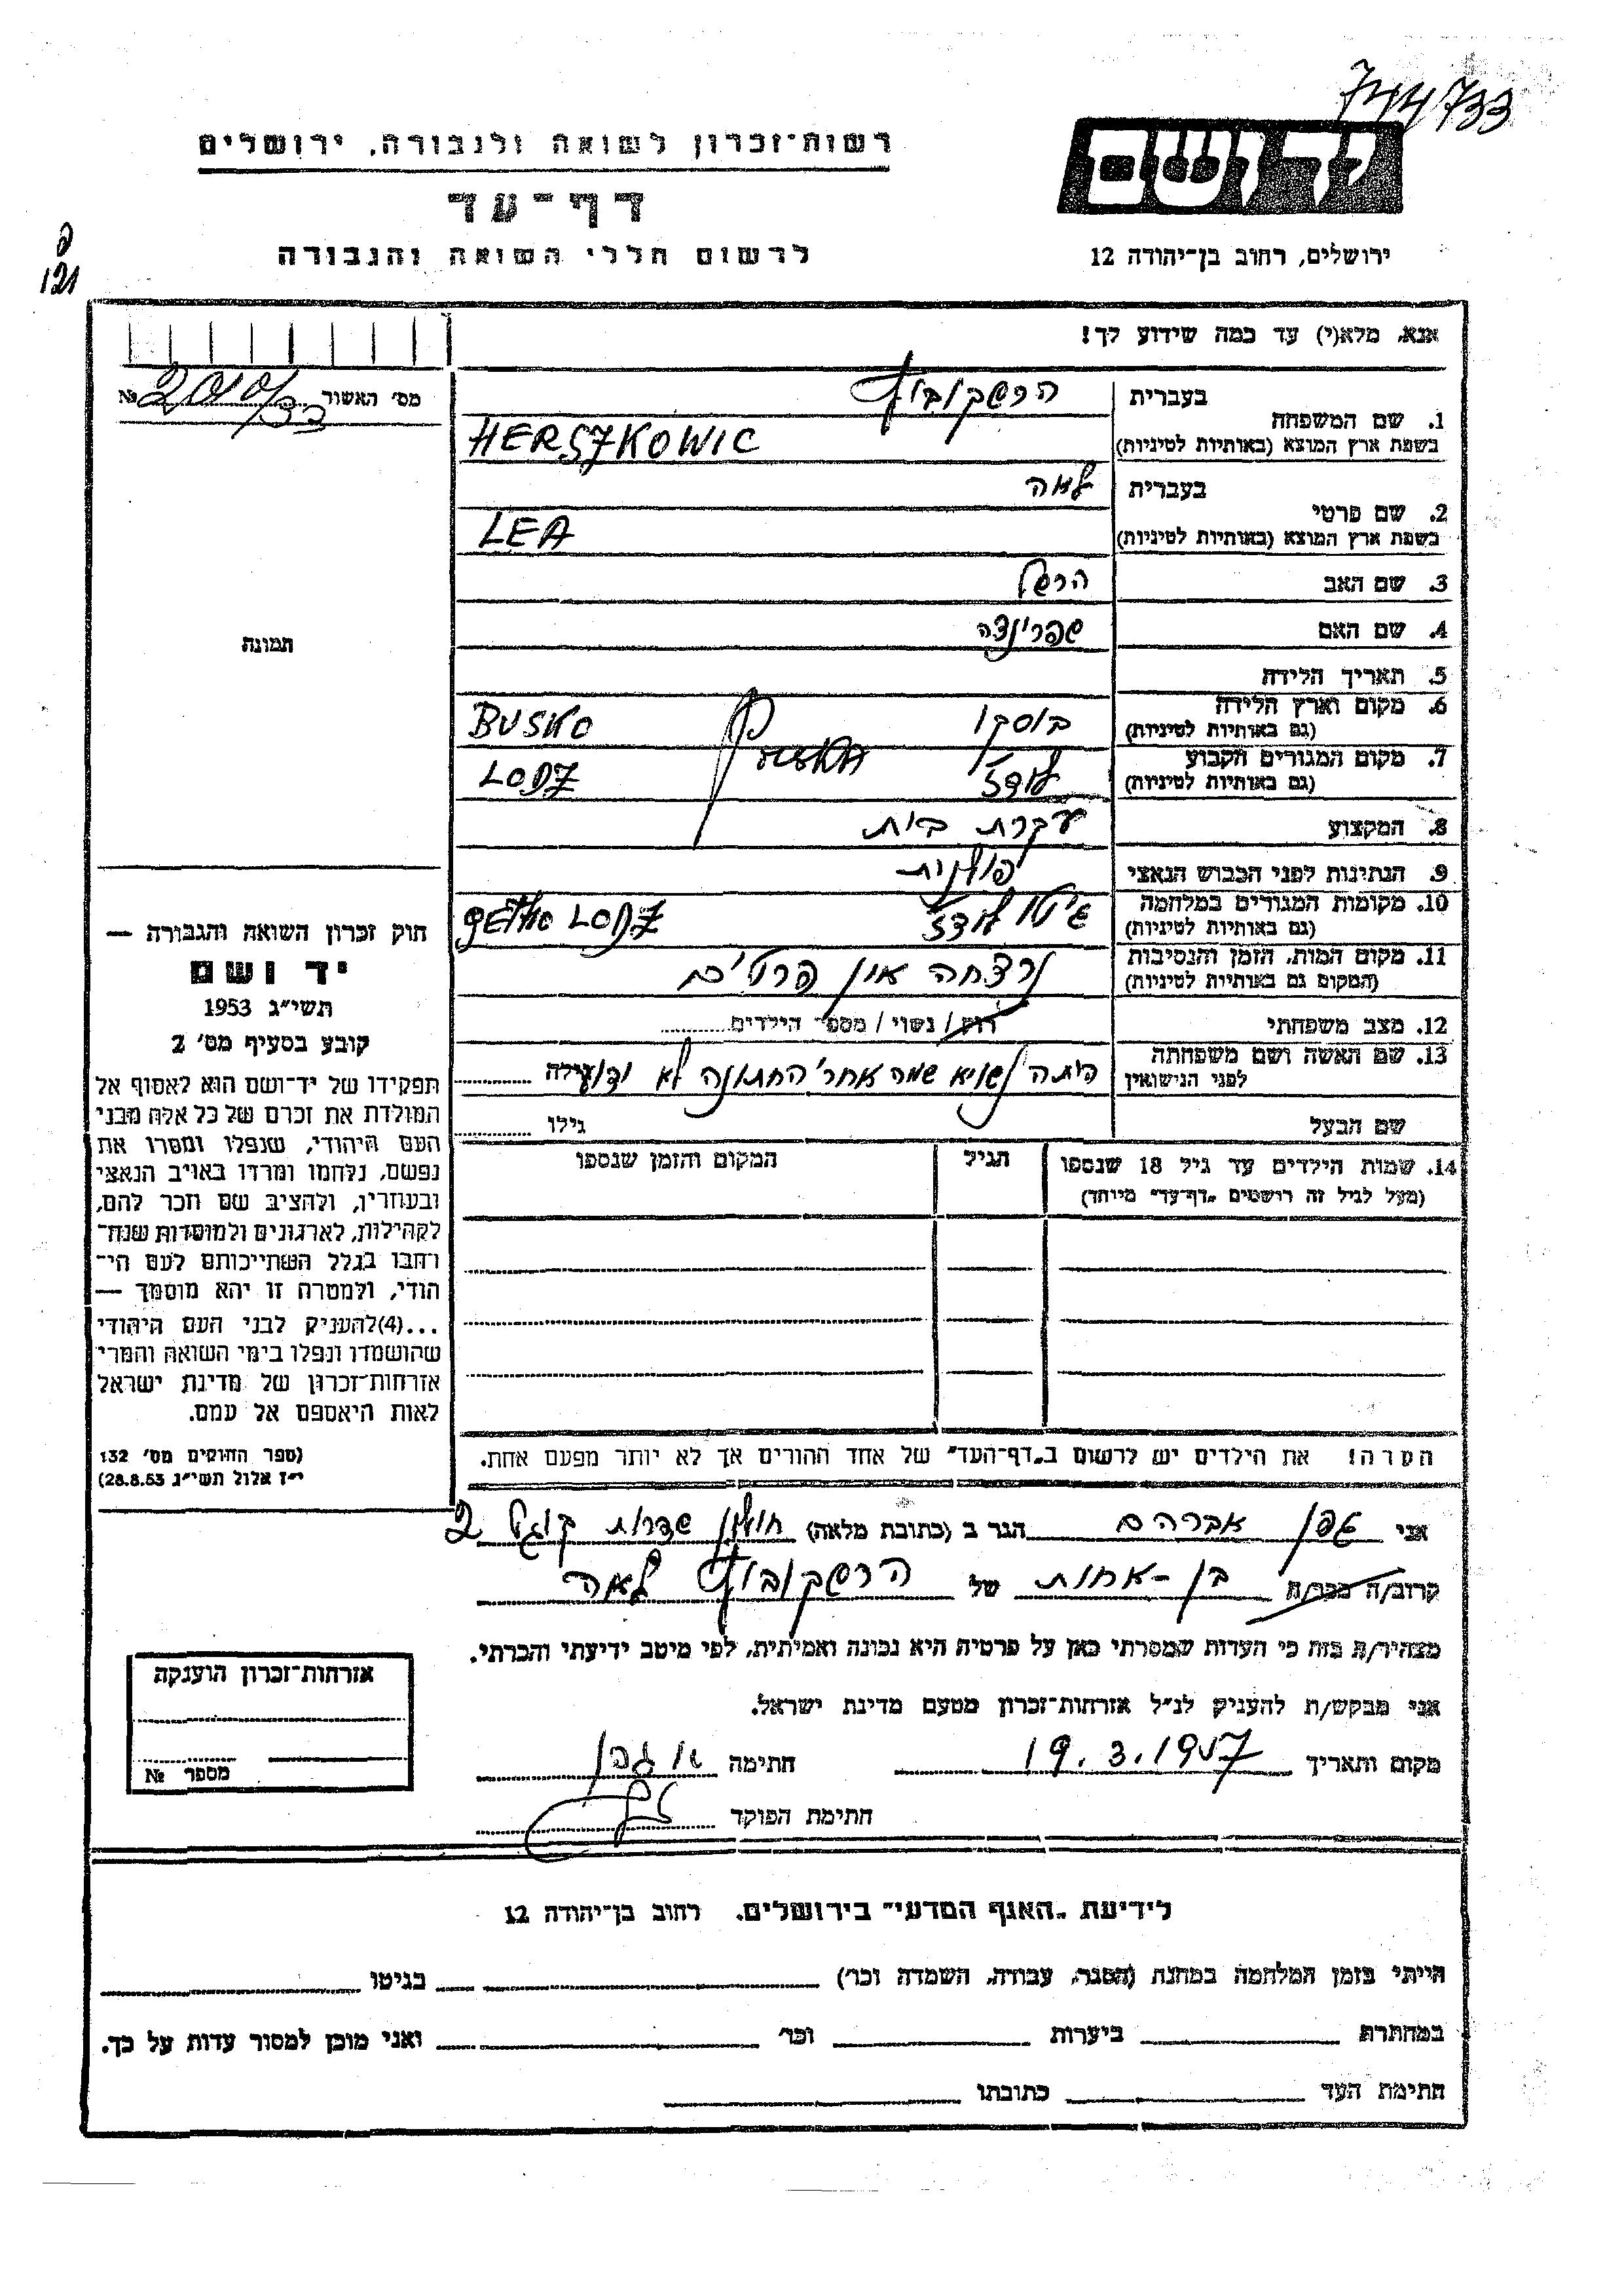 744733
רשות־זכרון לשואה ולגבורה, ירושלים
יד ושם
דף־עד
לרשום חללי השואה והגבורה
ירושלים, רחוב בן־יהודה 12
פ
121
אנא, מלא(י) עד כמה שידוע לך!
מס׳ האשור №
1. שם המשפחה
בעברית הרשקוביץ
בשפת ארץ המוצא (באותיות לטיניות) HERSZKOWIC
2. שם פרטי
בעברית לאה
בשפת ארץ המוצא (באותיות לטיניות) LEA
3. שם האב הרשל
4. שם האם שפרינצה
5. תאריך הלידה
6. מקום וארץ הלידה
(גם באותיות לטיניות) בוסקו BUSKO
7. מקום המגורים הקבוע
(גם באותיות לטיניות) לודז׳ LODZ
8. המקצוע עקרת בית
9. הנתינות לפני הכבוש הנאצי פולנית
10. מקומות המגורים במלחמה
(גם באותיות לטיניות) גיטו לודז׳ GETHO LODZ
11. מקום המות, הזמן והנסיבות
(המקום גם באותיות לטיניות) נרצחה אין פרטים
12. מצב משפחתי רווק / נשוי / מספר הילדים
13. שם האשה ושם משפחתה
לפני הנישואין היתה נשויא שמה אחרי החתונה לא ידוע גילה
שם הבעל גילו
14. שמות הילדים עד גיל 18 שנספו
(מעל לגיל זה רושמים „דף־עד״ מיוחד)
הגיל
המקום והזמן שנספו
הערה! את הילדים יש לרשום ב„דף־העד״ של אחד ההורים אך לא יותר מפעם אחת.
תמונה
חוק זכרון השואה והגבורה —
יד ושם
תשי״ג 1953
קובע בסעיף מס׳ 2
תפקידו של יד־ושם הוא לאסוף אל
המולדת את זכרם של כל אלה מבני
העם היהודי, שנפלו ומסרו את
נפשם, נלחמו ומרדו באויב הנאצי
ובעוזריו, ולהציב שם וזכר להם,
לקהילות, לארגונים ולמוסדות שנח־
רבו בגלל השתייכותם לעם הי־
הודי, ולמטרה זו יהא מוסמך —
...(4)להעניק לבני העם היהודי
שהושמדו ונפלו בימי השואה והמרי
אזרחות־זכרון של מדינת ישראל
לאות היאספם אל עמם.
(ספר החוקים מס׳ 132
י״ז אלול תשי״ג 28.8.53)
אני גפן אברהם הגר ב (כתובת מלאה) חולון שדרות קוגל 2
קרוב/ה מכר/ה בן-אחות של הרשקוביץ לאה
מצהיר/ה בזה כי העדות שמסרתי כאן על פרטיה היא נכונה ואמיתית, לפי מיטב ידיעתי והכרתי.
אני מבקש/ת להעניק לנ״ל אזרחות־זכרון מטעם מדינת ישראל.
מקום ותאריך 19.3.1957 חתימה א גפן
חתימת הפוקד
אזרחות־זכרון הוענקה
מספר №
לידיעת „האגף המדעי״ בירושלים, רחוב בן־יהודה 12
הייתי בזמן המלחמה במחנה (הסגר, עבודה, השמדה וכו׳) בגיטו
במחתרת ביערות וכו׳ ואני מוכן למסור עדות על כך.
חתימת העד כתובתו